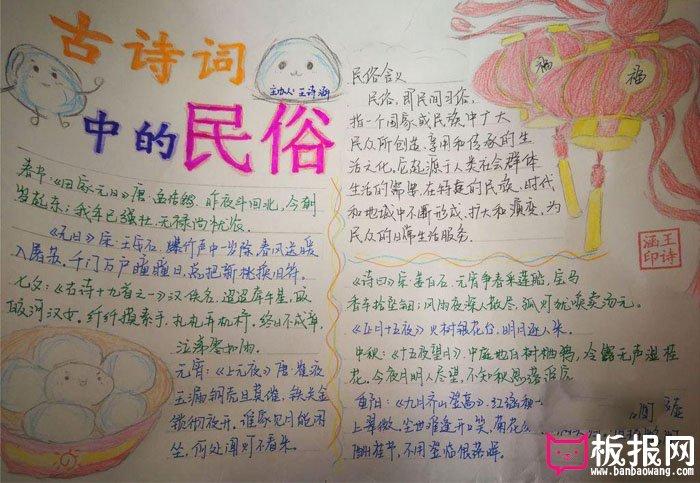 古诗词
中的民俗
主办人:王诗涵
春节:《田家元日》唐·孟浩然 昨夜斗回北,今朝
岁起东;我年已强壮,无禄尚忧农。
《元日》宋·王安石 爆竹声中一岁除,春风送暖
入屠苏。千门万户曈曈日,总把新桃换旧符。
七夕:《古诗十九首之一》汉·佚名,迢迢牵牛星,皎
皎河汉女。纤纤擢素手,札札弄机杼。终日不成章,
泣涕零如雨。
元宵:《上元夜》唐·崔液
玉漏铜壶且莫催,铁关金
锁彻夜开。谁家见月能闲
坐,何处闻灯不看来。
民俗含义
民俗,即民间习俗,
指一个国家或民族中广大
民众所创造、享用和传承的生
活文化,它起源于人类社会群体
生活的需要,在特定的民族、时代
和地域中不断形成、扩大和演变,为
民众的日常生活服务。
福
福
王诗
涵印
《诗曰》宋·姜白石,元宵争看采莲船,宝马
香车拾坠钿;风雨夜深人散尽,孤灯犹唤卖汤元。
《正月十五夜》火树银花合,明月逐人来。
中秋:《十五夜望月》,中庭地白树栖鸦,冷露无声湿桂
花,今夜月明人尽望,不知秋思落谁家
重阳:《九月齐山登高》,江涵秋
上翠微,尘世难逢开口笑,菊花
酬佳节,不用登临恨落晖。
板报网
www.banbaowang.com